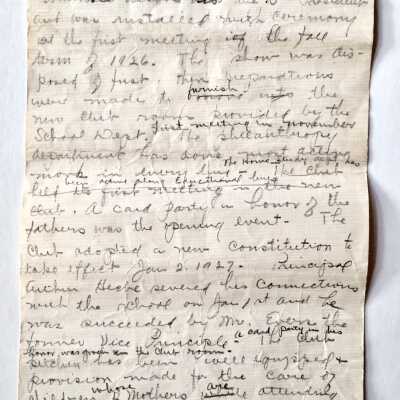 President
and was installed with ceremony
at the first meeting of the fall
term of 1926. The show was dis-
posed of first, then preparations
furnish
were made to the
new Club room provided by the
School Dept. first meeting in November The philanthropy
department has done most
work in every line. the Home study dept. has
been active along Educational lines The Club
held its first meeting in the new
Club. A card party in honor of the
fathers was the opening event. The
Club adopted a new Constitution to
take effect Jan 2. 1927. Principal
Arthur severed his connections
with the school on Jan 1st and he
was succeeded by Mr. Evers the
former Vice Principle. a card party in his
honor was given in the Club room. The Club
kitchen has been well equipped &
provision made for the care of
children whose Mothers are attending